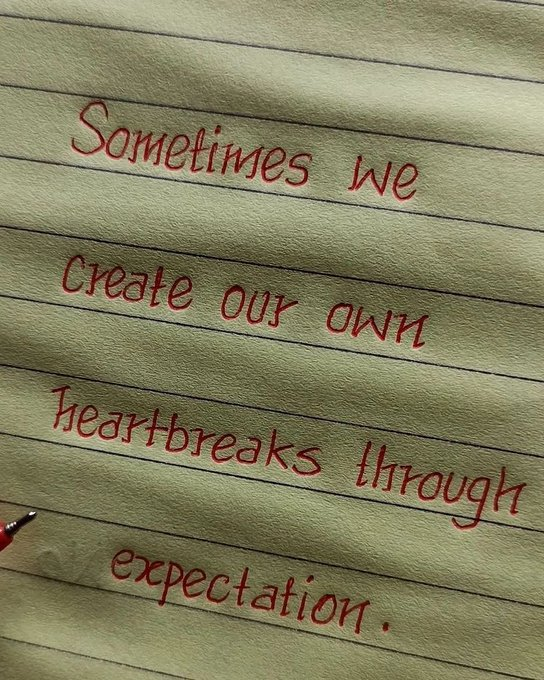 Sometimes we
create our own
heartbreaks through
expectation.